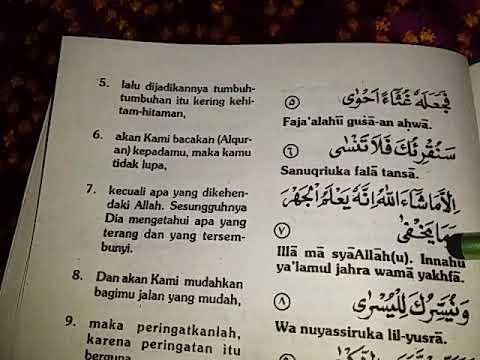 5. lalu dijadikannya tumbuh-
tumbuhan itu kering kehi-
tam-hitaman,
فَجَعَلَهُ غُثَاءً أَحْوَى ۝٥
Faja'alahū gusā-an aḥwā.
6. akan Kami bacakan (Alqur-
an) kepadamu, maka kamu
tidak lupa,
سَنُقْرِئُكَ فَلَا تَنْسَى ۝٦
Sanuqriuka falā tansā.
7. kecuali apa yang dikehen-
daki Allah. Sesungguhnya
Dia mengetahui apa yang
terang dan yang tersem-
bunyi.
إِلَّا مَا شَاءَ اللهُ إِنَّهُ يَعْلَمُ الْجَهْرَ
وَمَا يَخْفَى ۝٧
Illā mā syāAllāh(u). Innahū
ya'lamul jahra wamā yakhfā.
8. Dan akan Kami mudahkan
bagimu jalan yang mudah,
وَنُيَسِّرُكَ لِلْيُسْرَى ۝٨
Wa nuyassiruka lil-yusrā.
9. maka peringatkanlah,
karena peringatan itu
berguna